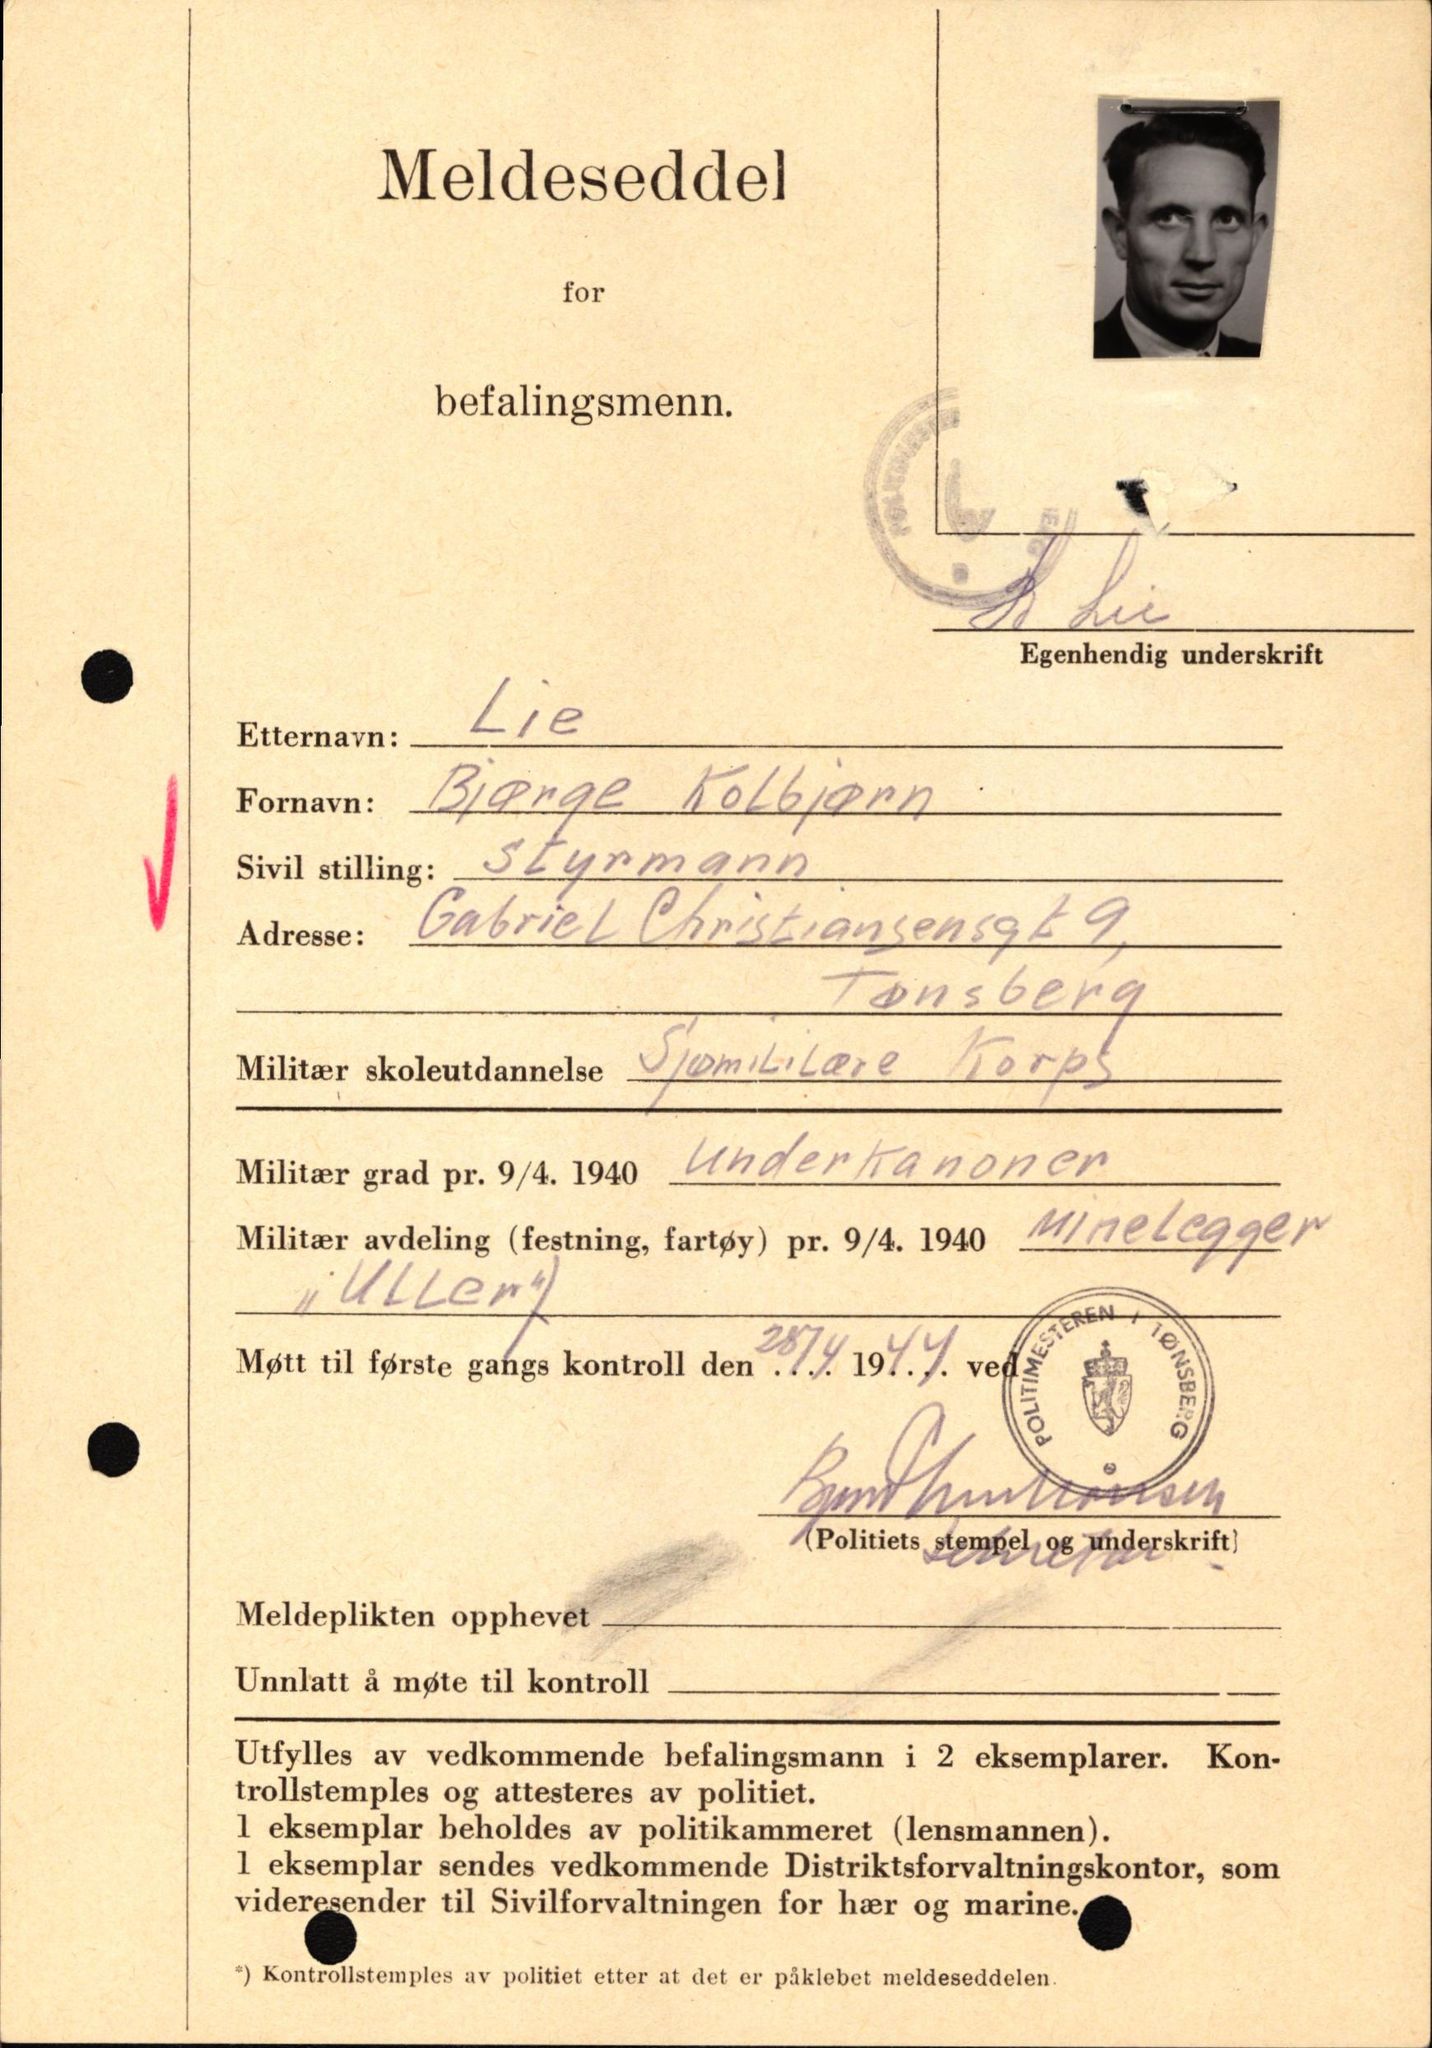 Meldeseddel
for
befalingsmenn.
Lie
Egenhendig underskrift
Etternavn: Lie
Fornavn: Bjørge Kolbjørn
Sivil stilling: Styrmann
Adresse: Gabriel Christiansensgt 9,
Tønsberg
Militær skoleutdannelse Sjømilitære Korps
Militær grad pr. 9/4. 1940 Underkanoner
Militær avdeling (festning, fartøy) pr. 9/4. 1940 Minelegger
„Uller")
Møtt til første gangs kontroll den 28/4 1944 ved
POLITIMESTEREN I TØNSBERG
(Politiets stempel og underskrift)
sekretær
Meldeplikten opphevet
Unnlatt å møte til kontroll
Utfylles av vedkommende befalingsmann i 2 eksemplarer. Kon-
trollstemples og attesteres av politiet.
1 eksemplar beholdes av politikammeret (lensmannen).
1 eksemplar sendes vedkommende Distriktsforvaltningskontor, som
videresender til Sivilforvaltningen for hær og marine.
*) Kontrollstemples av politiet etter at det er påklebet meldeseddelen.